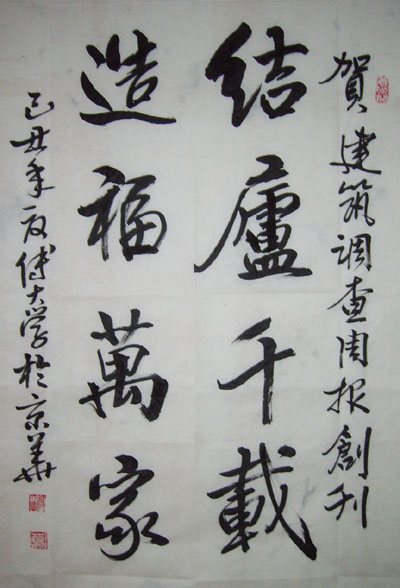 賀建筑调查周报創刊
結廬千載
造福萬家
己丑年夏傅大学於京華